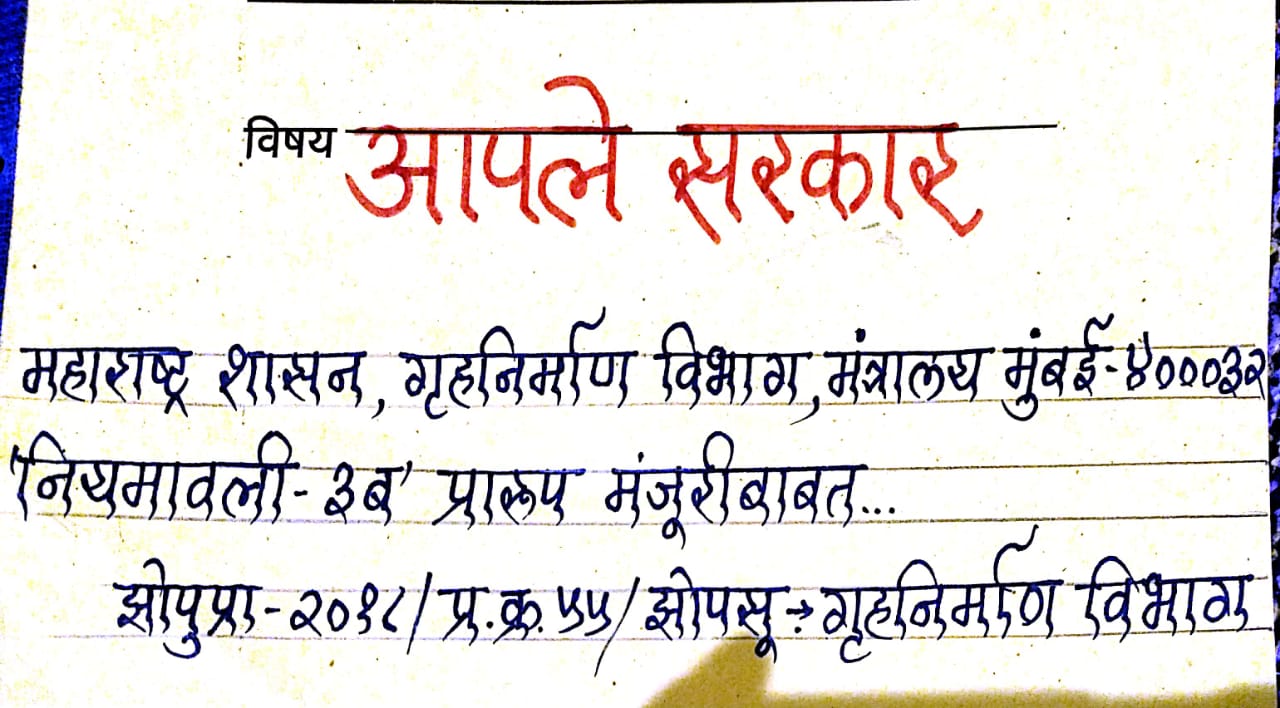 विषय आपले सरकार
महाराष्ट्र शासन, गृहनिर्माण विभाग, मंत्रालय मुंबई-४०००३२
'नियमावली-३ब' प्रारूप मंजूरीबाबत...
झोपुप्रा-२०१८/प्र.क्र.५५/झोपसू→गृहनिर्माण विभाग